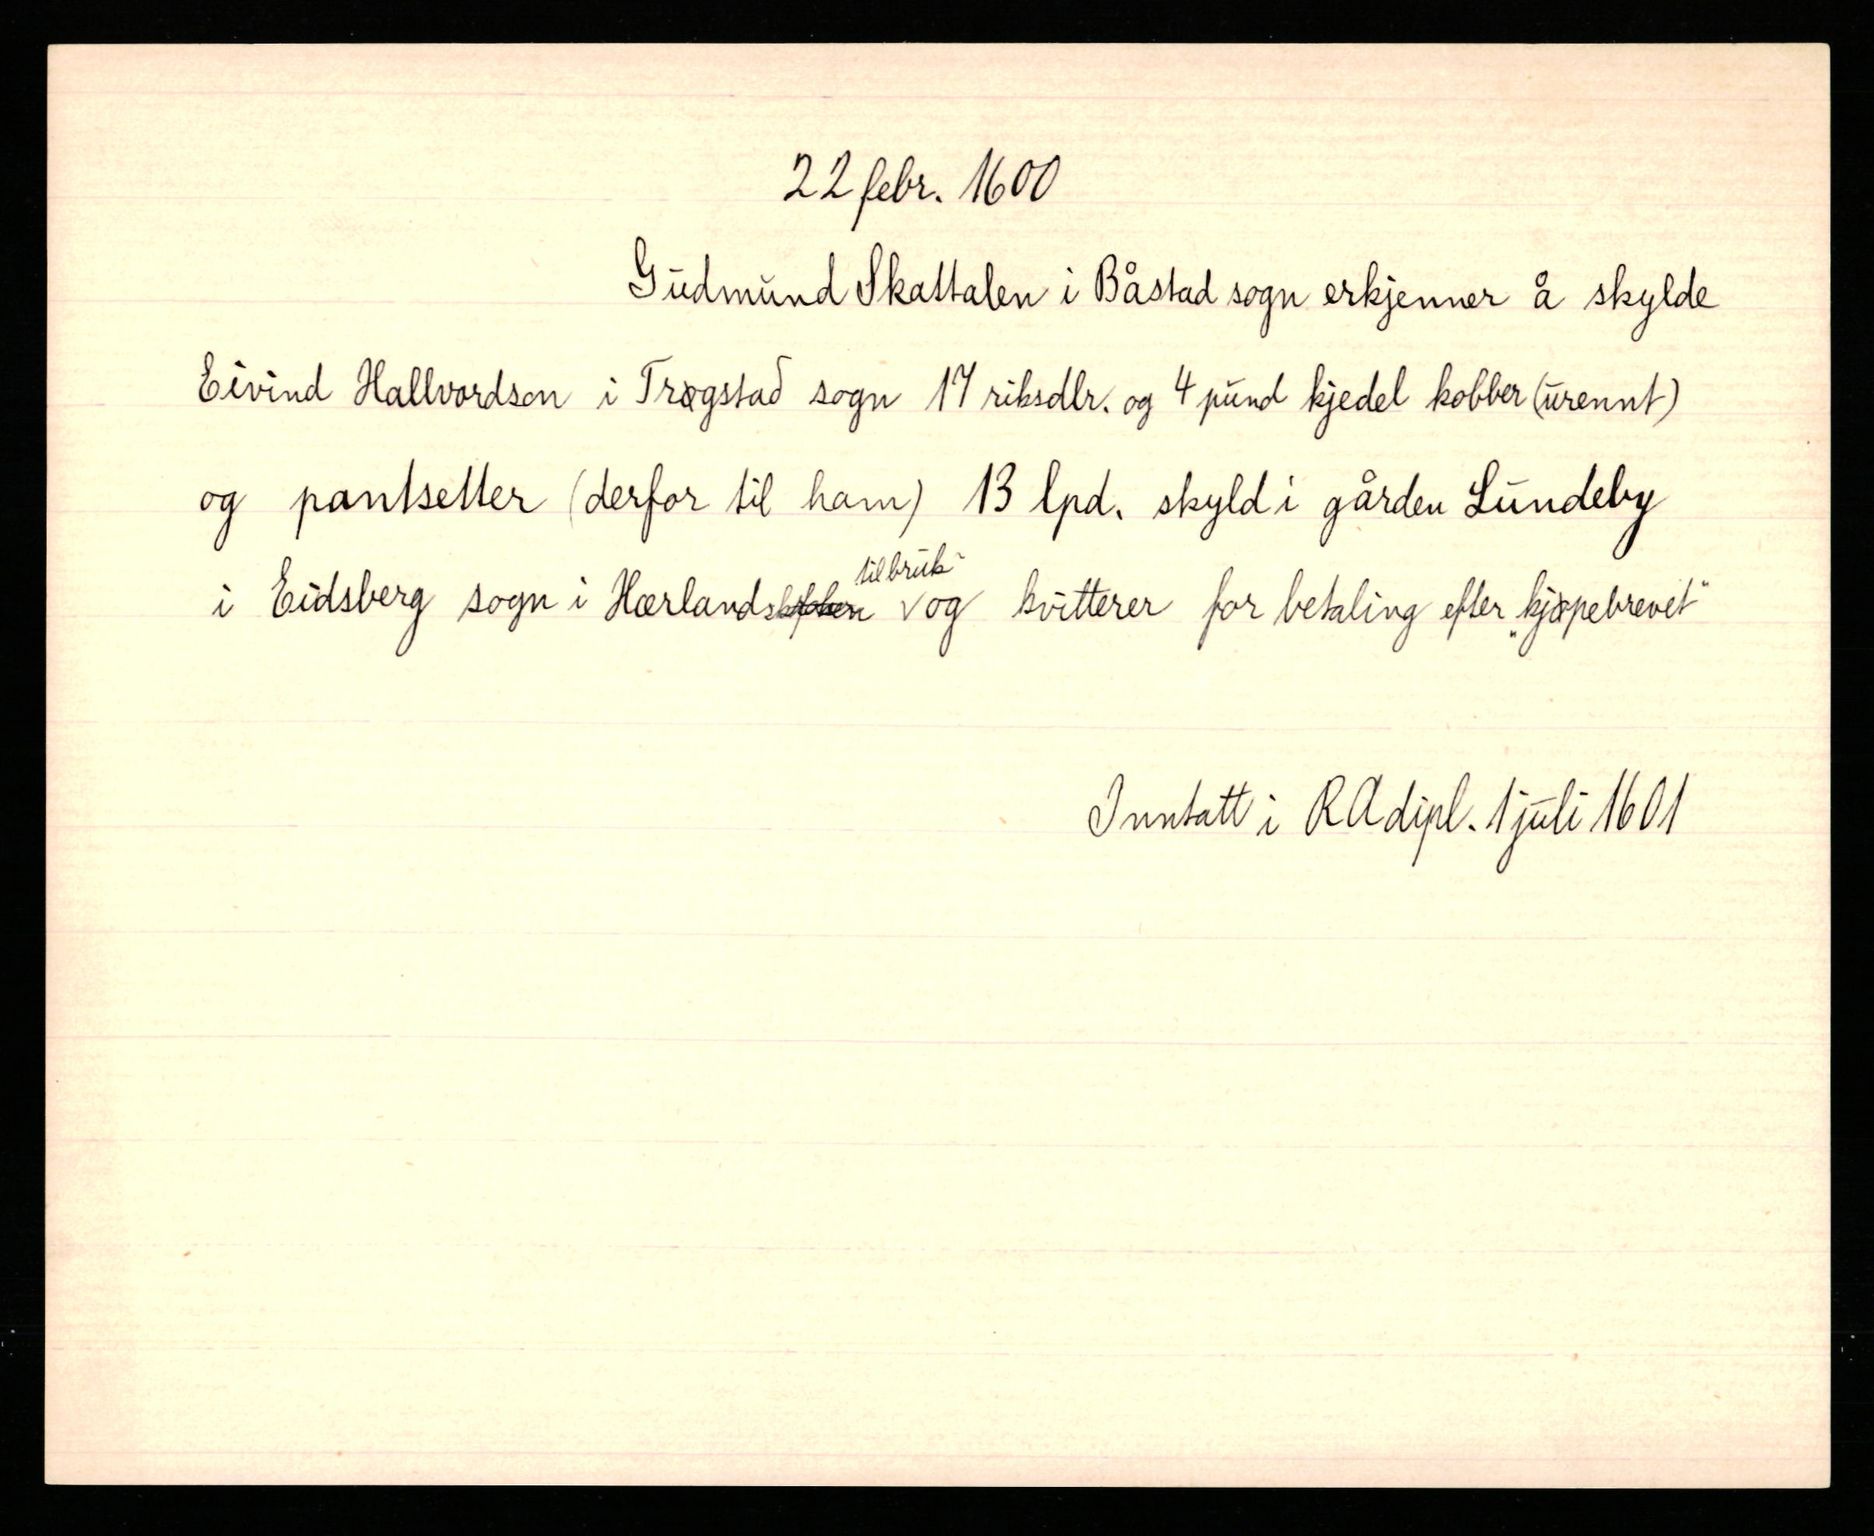 22 febr. 1600
Gudmund Skattalen i Båstad sogn erkjenner å skylde
Eivind Hallvordson i Trøgstad sogn 17 riksdlr. og 4 pund kjedel kobber (urennt)
og pantsetter (derfor til ham) 13 lpd. skyld i gården Lundeby
til bruk
i Eidsberg sogn i Hærland og kvitterer for betaling efter „kjøpebrevet“
Inntatt i RA dipl. 1 juli 1601